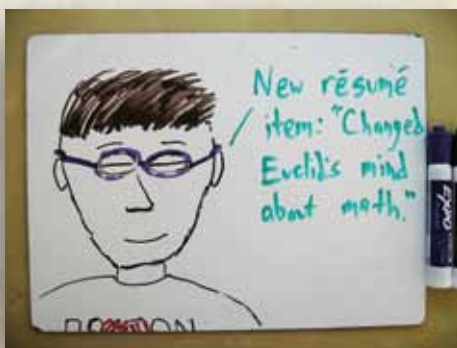 New résumé
item: "Changed
Euclid's mind
about math."
EXPO